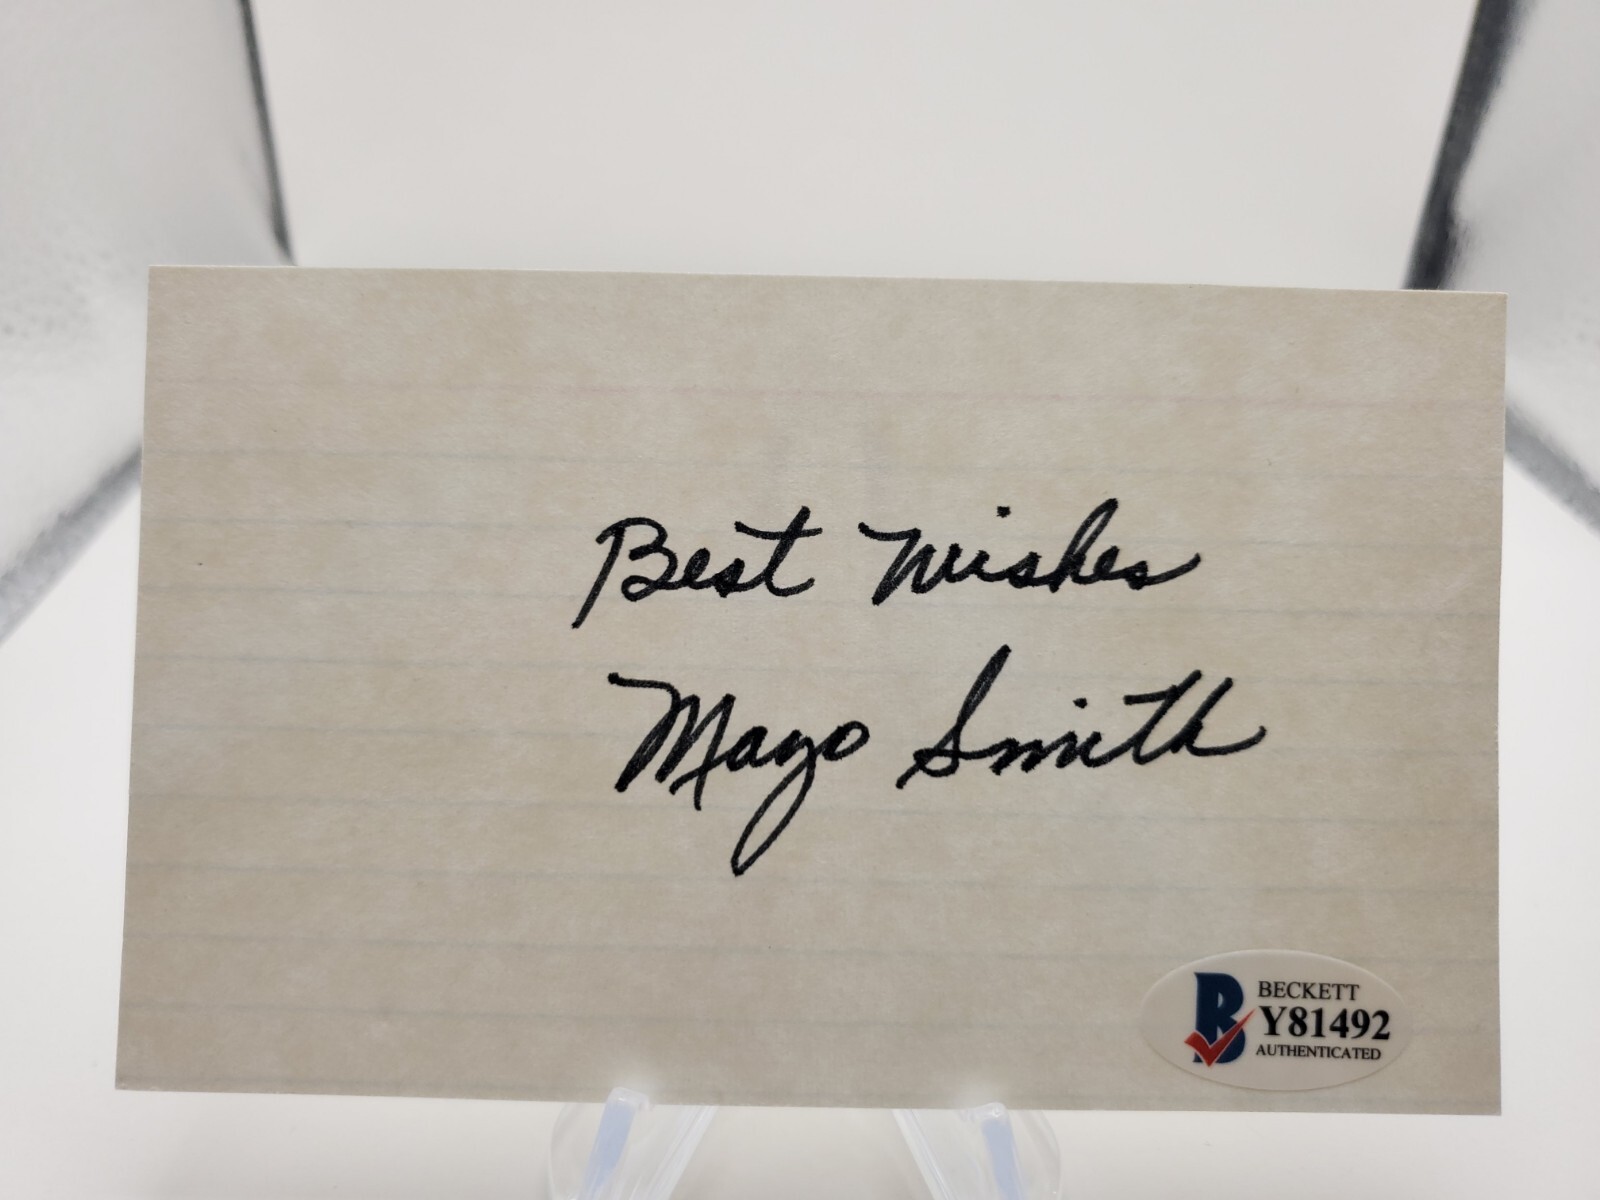 Best Wishes
Mayo Smith
BECKETT
Y81492
AUTHENTICATED